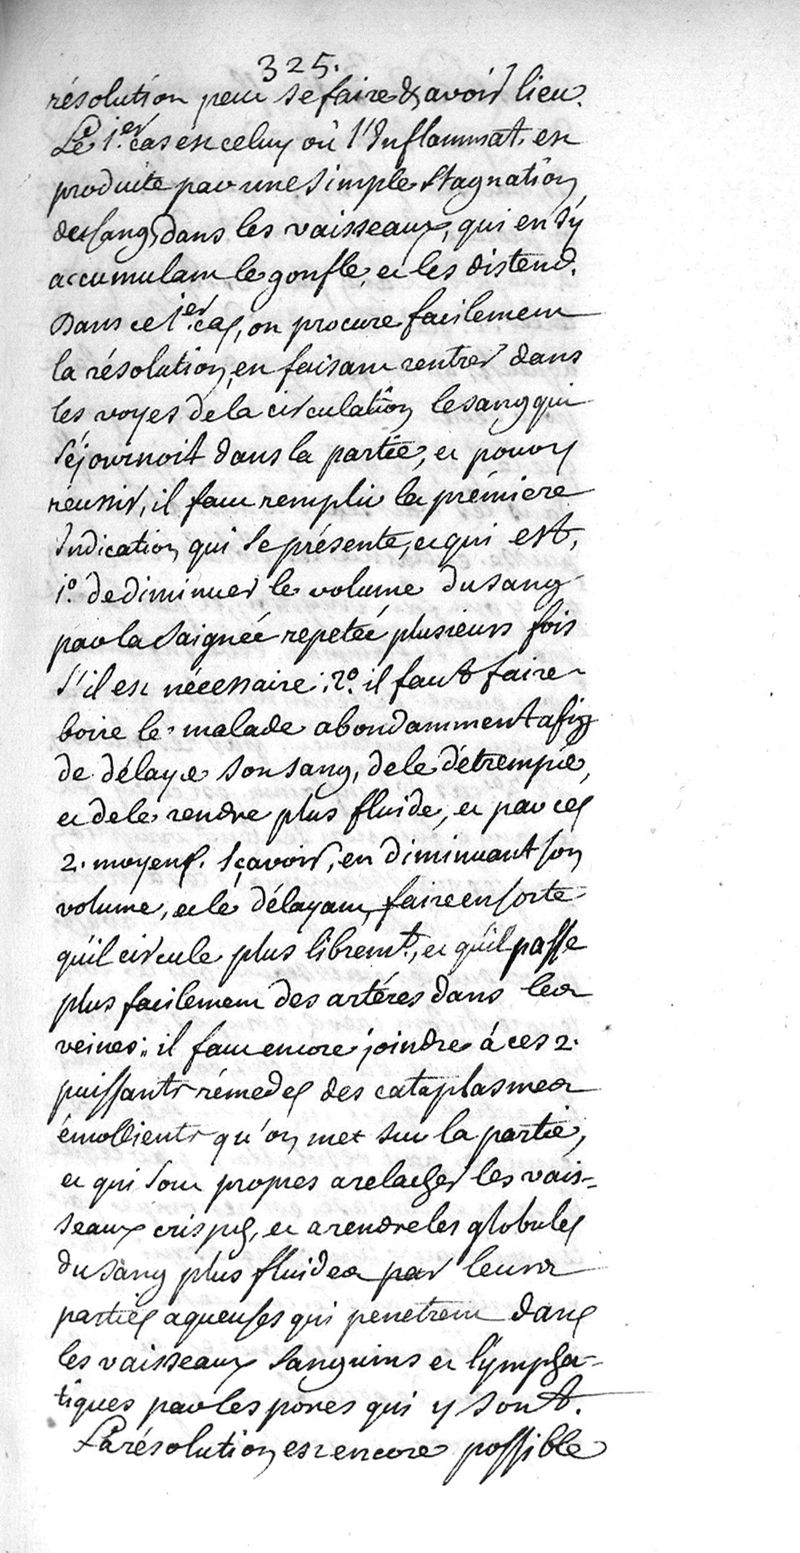 325.
résolution peut se faire & avoir lieu.
Le 1.er cas est celuy où l'Inflammat. est
produite par une simple stagnation
du sang dans les vaisseaux, qui en s'y
accumulant le gonfle, et les distend.
Dans ce 1.er cas, on procure facilement
la résolution, en faisant rentrer dans
les voyes de la circulation le sang qui
séjournoit dans la partie, et pour y
réussir, il faut remplir la prémiere
Indication qui se présente, et qui est,
1.º de diminuer le volume du sang
par la saignée repetée plusieurs fois
s'il est nécessaire; 2.º il faut faire
boire le malade abondamment afin
de délayer son sang, de le détremper,
et de le rendre plus fluide, et par ces
2. moyens. sçavoir, en diminuant son
volume, et le délayant, faire en sorte
qu'il circule plus librem.t, et qu'il passe
plus facilement des artéres dans les
veines; il faut encore joindre à ces 2.
puissants rémedes des cataplasmes
émollients qu'on met sur la partie,
et qui sont propres a relacher les vais-
seaux crispés, et a rendre les globules
du sang plus fluides par leurs
parties aqueuses qui penetrent dans
les vaisseaux sanguins et lympha-
tiques par les pores qui y sont.
La résolution est encore possible